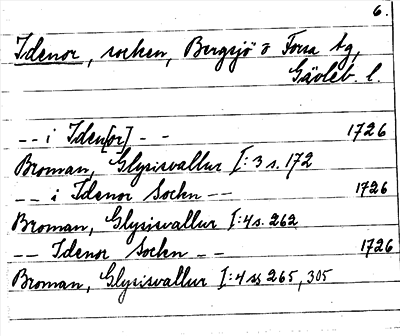 6.
Idenor, socken, Bergsjö o Forsa tg,
Gävleb. l.
-- i Iden[or] - - 1726
Broman, Glysisvallur I:3 s. 172
-- i Idenor Sockn -- 1726
Broman, Glysisvallur I:4 s. 262
-- Idenor Sockn -- 1726
Broman, Glysisvallur I:4 ss 265, 305